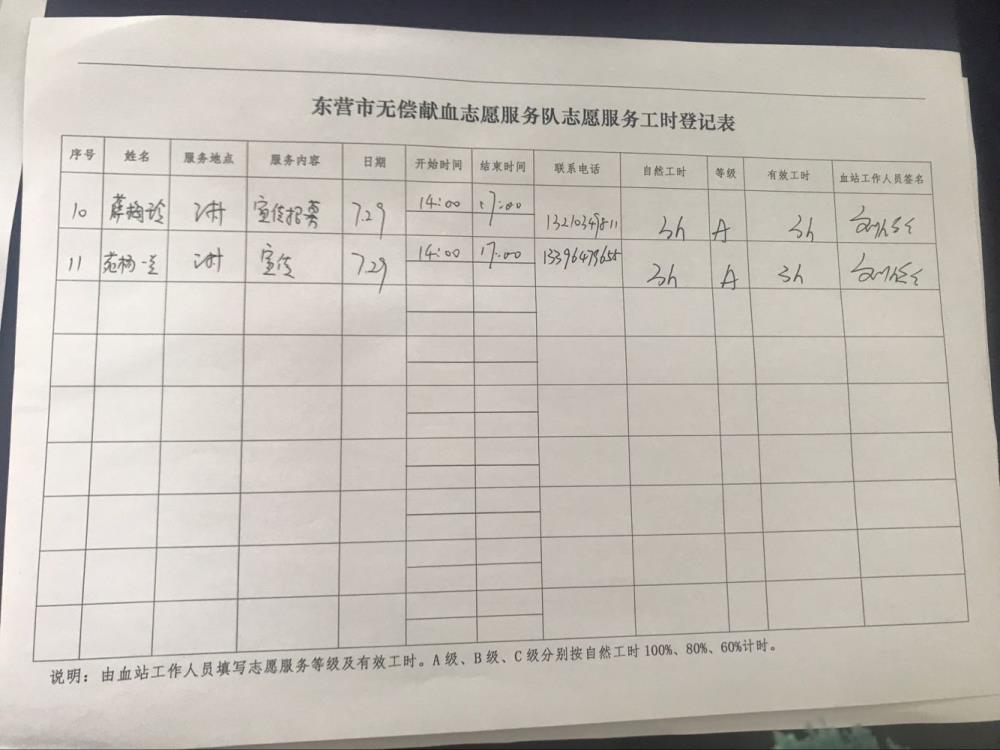 东营市无偿献血志愿服务队志愿服务工时登记表
序号 姓名 服务地点 服务内容 日期 开始时间 结束时间 联系电话 自然工时 等级 有效工时 血站工作人员签名
10 宣传招募 7.29 14:00 17:00 13210349811 3h A 3h
11 宣传 7.29 14:00 17:00 13396479655 3h A 3h
说明：由血站工作人员填写志愿服务等级及有效工时。A级、B级、C级分别按自然工时100%、80%、60%计时。